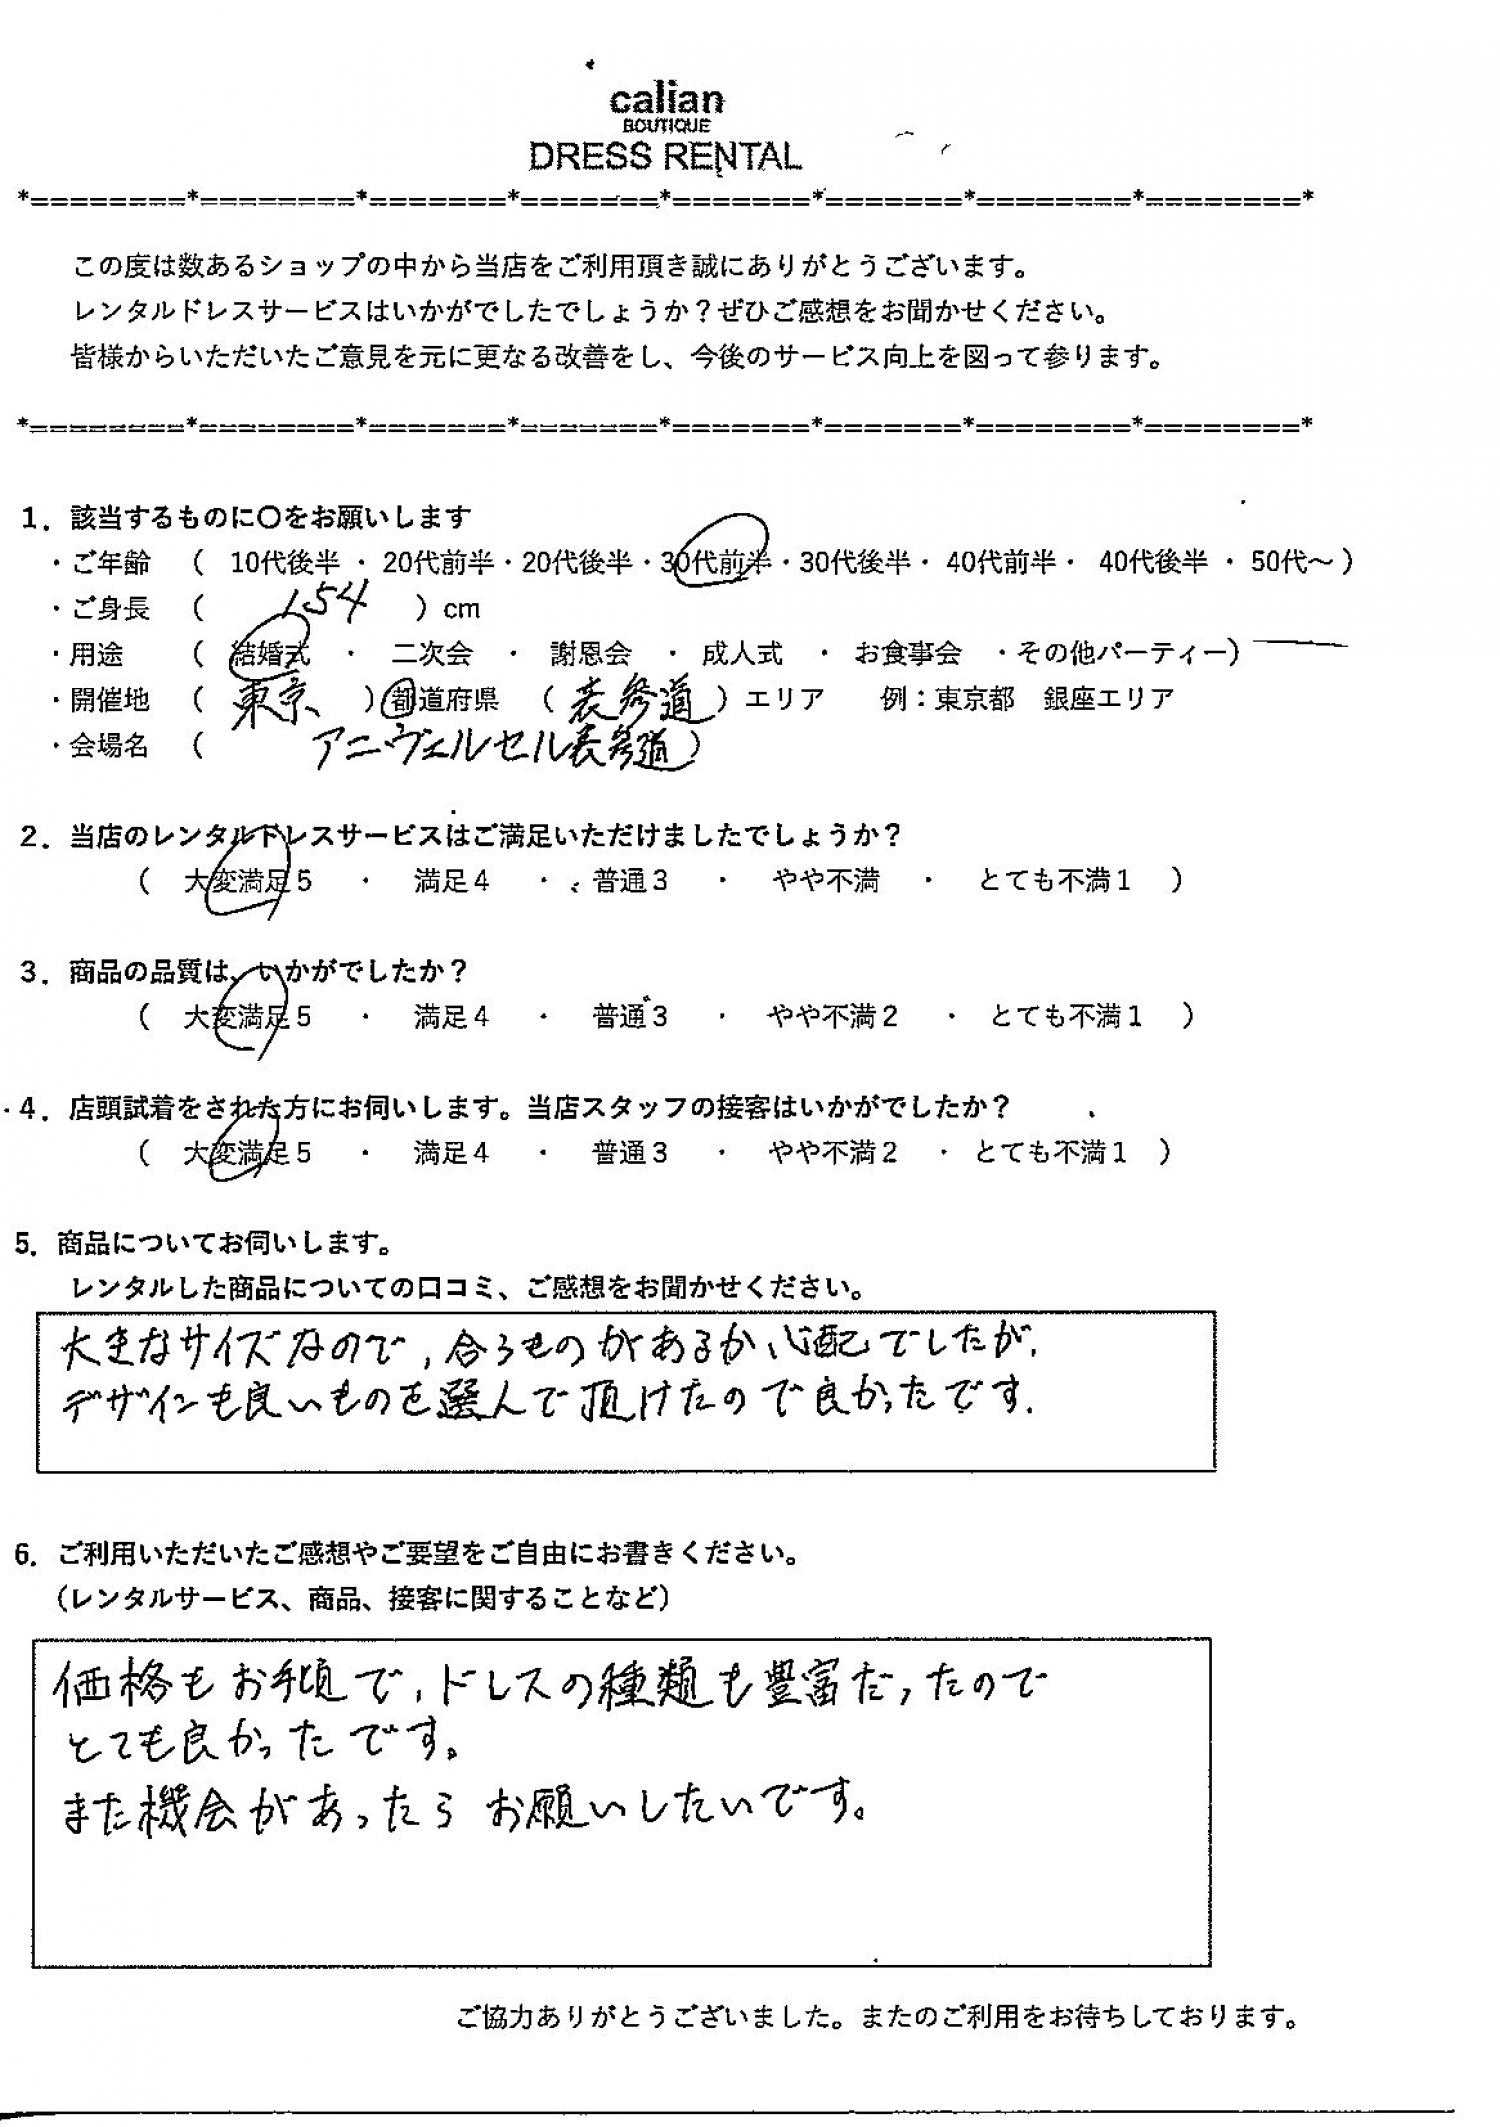 calian
BOUTIQUE
DRESS RENTAL
*========*========*=======*=======*=======*=======*========*========*
この度は数あるショップの中から当店をご利用頂き誠にありがとうございます。
レンタルドレスサービスはいかがでしたでしょうか？ぜひご感想をお聞かせください。
皆様からいただいたご意見を元に更なる改善をし、今後のサービス向上を図って参ります。
*========*========*=======*=======*=======*=======*========*========*
1．該当するものに〇をお願いします
・ご年齢 （ 10代後半 ・ 20代前半・20代後半・30代前半・30代後半・ 40代前半・ 40代後半 ・ 50代～）
・ご身長 （ 154 ）cm
・用途 （ 結婚式 ・ 二次会 ・ 謝恩会 ・ 成人式 ・ お食事会 ・その他パーティー）
・開催地 （ 東京 ）都道府県 （ 表参道 ）エリア 例：東京都 銀座エリア
・会場名 （ アニヴェルセル表参道 ）
2．当店のレンタルドレスサービスはご満足いただけましたでしょうか？
（ 大変満足5 ・ 満足4 ・ 普通3 ・ やや不満 ・ とても不満1 ）
3．商品の品質は、いかがでしたか？
（ 大変満足5 ・ 満足4 ・ 普通3 ・ やや不満2 ・ とても不満1 ）
4．店頭試着をされた方にお伺いします。当店スタッフの接客はいかがでしたか？
（ 大変満足5 ・ 満足4 ・ 普通3 ・ やや不満2 ・ とても不満1 ）
5．商品についてお伺いします。
レンタルした商品についての口コミ、ご感想をお聞かせください。
大きなサイズなので、合うものがあるか心配でしたが、
デザインも良いものを選んで頂けたので良かったです．
6．ご利用いただいたご感想やご要望をご自由にお書きください。
（レンタルサービス、商品、接客に関することなど）
価格もお手頃で、ドレスの種類も豊富だったので
とても良かったです。
また機会があったらお願いしたいです。
ご協力ありがとうございました。またのご利用をお待ちしております。